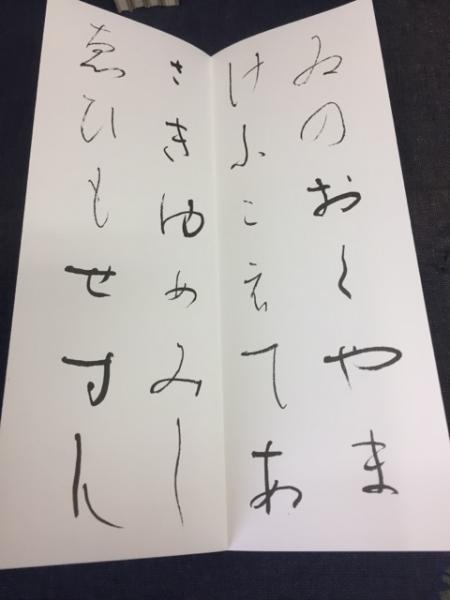 ゐのおくやま
けふこえてあ
さきゆめみし
ゑひもせすん